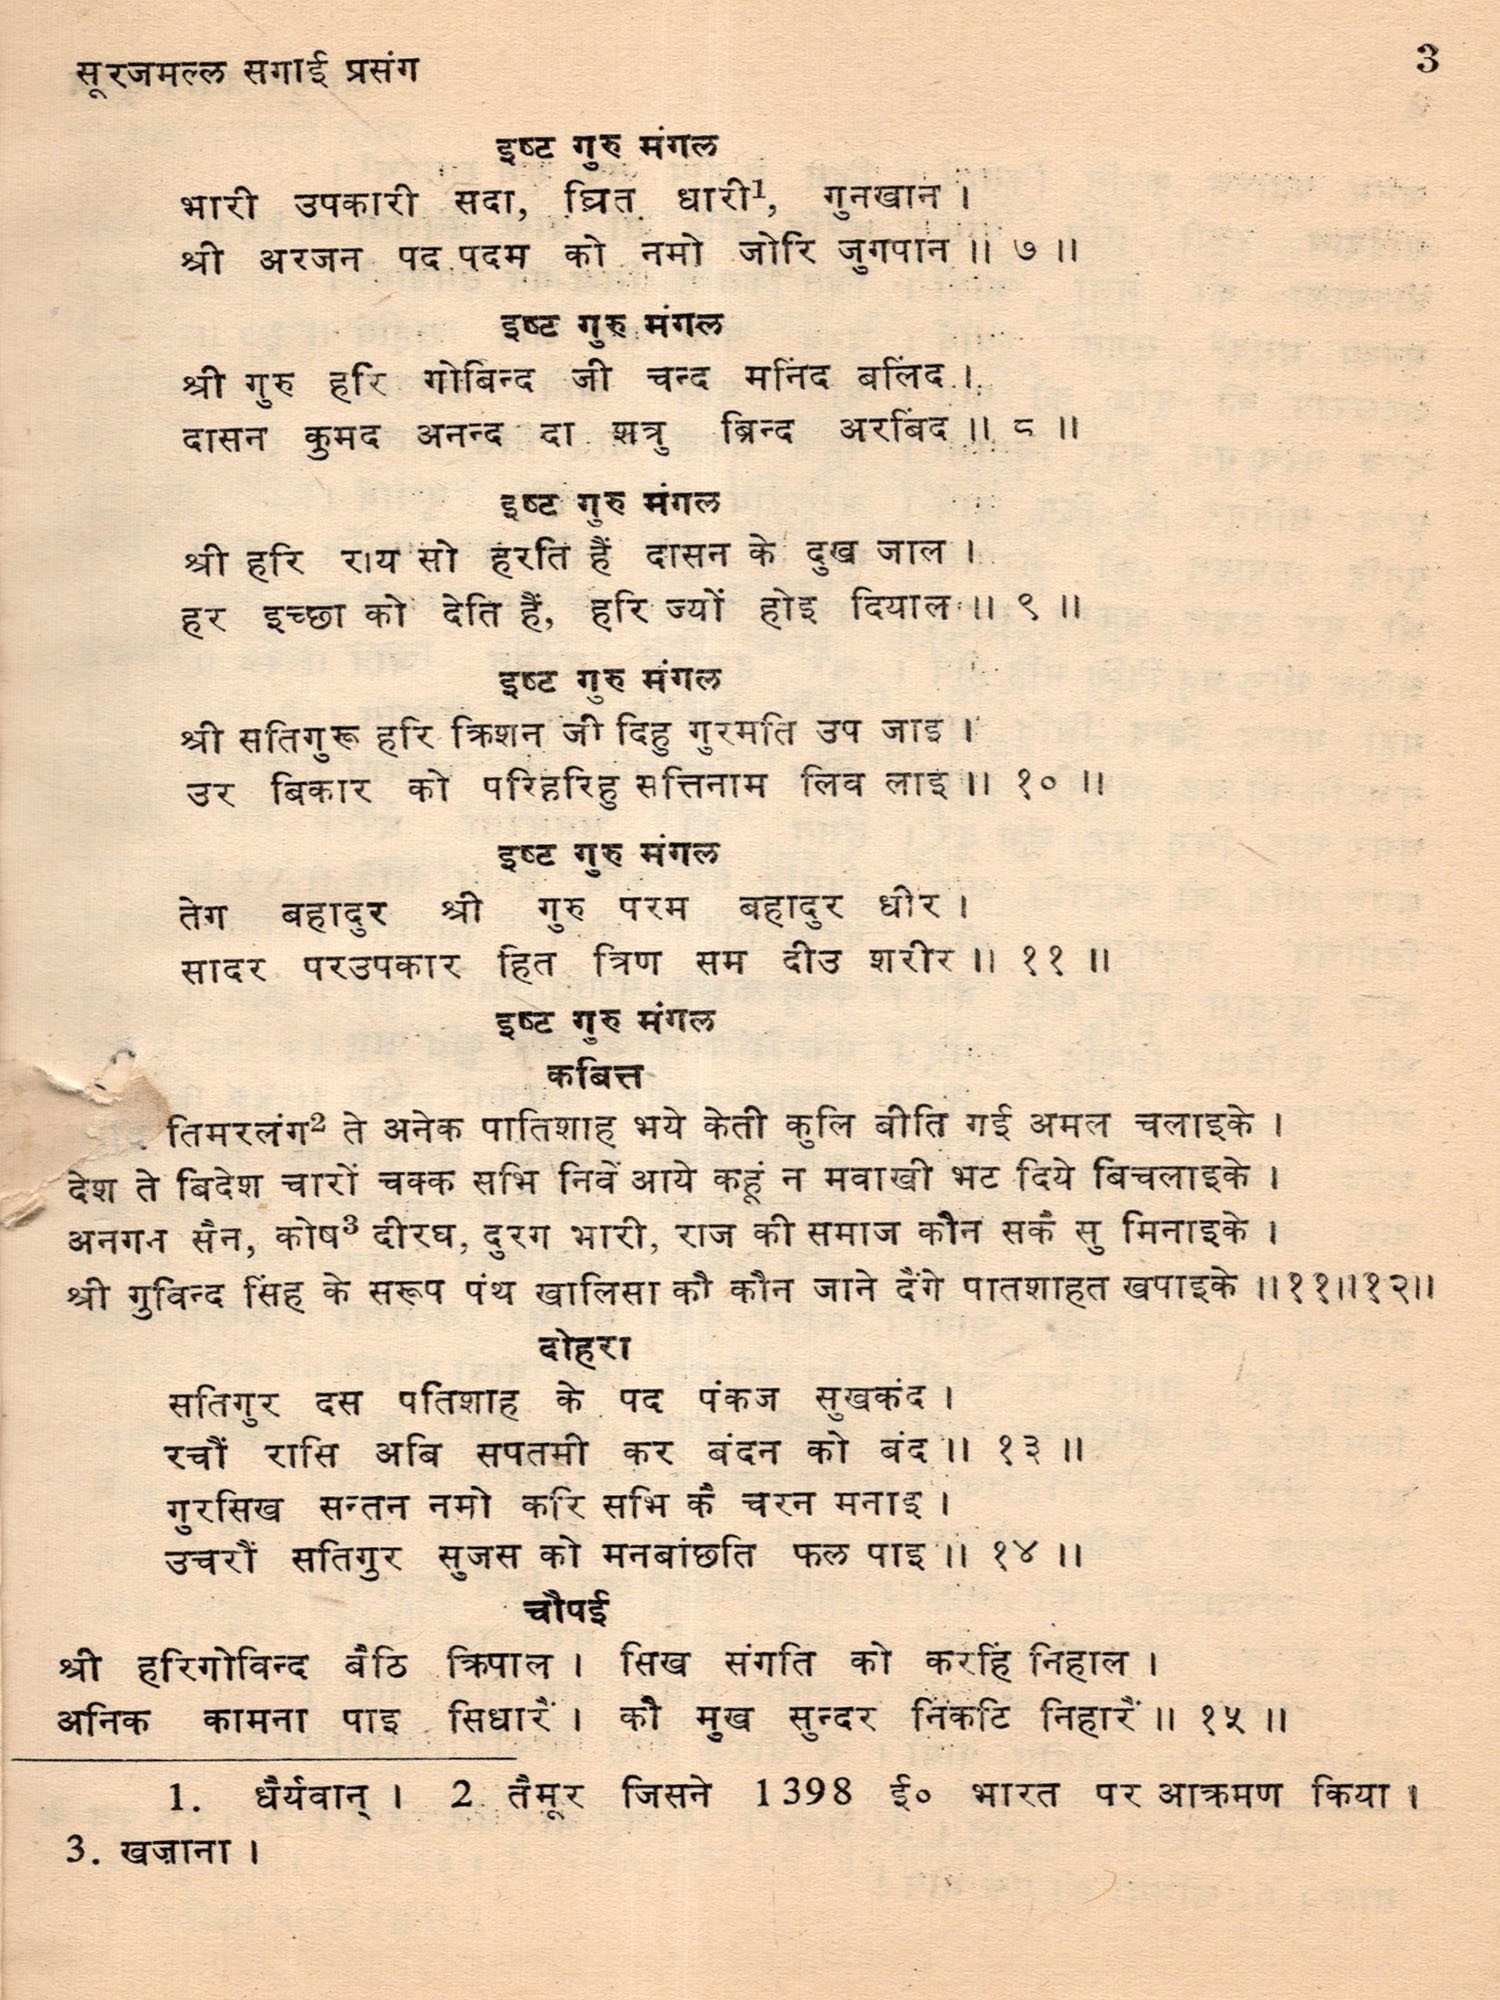 सूरजमल्ल सगाई प्रसंग 3
इष्ट गुरु मंगल
भारी उपकारी सदा, घ्रित धारी¹, गुनखान ।
श्री अरजन पद पदम को नमो जोरि जुगपान ॥ ७ ॥
इष्ट गुरु मंगल
श्री गुरु हरि गोबिन्द जी चन्द मनिंद बलिंद ।
दासन कुमद अनन्द दा शत्रु ब्रिन्द अरबिंद ॥ ८ ॥
इष्ट गुरु मंगल
श्री हरि राय सो हरति हैं दासन के दुख जाल ।
हर इच्छा को देति हैं, हरि ज्यों होइ दियाल ॥ ९ ॥
इष्ट गुरु मंगल
श्री सतिगुरू हरि क्रिशन जी दिहु गुरमति उप जाइ ।
उर बिकार को परिहरिहु सत्तिनाम लिव लाइ ॥ १० ॥
इष्ट गुरु मंगल
तेग बहादुर श्री गुरु परम बहादुर धीर ।
सादर परउपकार हित त्रिण सम दीउ शरीर ॥ ११ ॥
इष्ट गुरु मंगल
कबित्त
तिमरलंग² ते अनेक पातिशाह भये केती कुलि बीति गई अमल चलाइके ।
देश ते बिदेश चारों चक्क सभि निवें आये कहूं न मवाखी भट दिये बिचलाइके ।
अनगन सैन, कोष³ दीरघ, दुरग भारी, राज की समाज कौन सकै सु मिनाइके ।
श्री गुविन्द सिंह के सरूप पंथ खालिसा कौ कौन जाने दैंगे पातशाहत खपाइके ॥११॥१२॥
दोहरा
सतिगुर दस पतिशाह के पद पंकज सुखकंद ।
रचौं रासि अबि सपतमी कर बंदन को बंद ॥ १३ ॥
गुरसिख सन्तन नमो करि सभि कै चरन मनाइ ।
उचरौं सतिगुर सुजस को मनबांछति फल पाइ ॥ १४ ॥
चौपई
श्री हरिगोविन्द बैठि क्रिपाल । सिख संगति को करहिं निहाल ।
अनिक कामना पाइ सिधारैं । कौ मुख सुन्दर निकटि निहारैं ॥ १५ ॥
1. धैर्यवान् । 2 तैमूर जिसने 1398 ई० भारत पर आक्रमण किया ।
3. खज़ाना ।